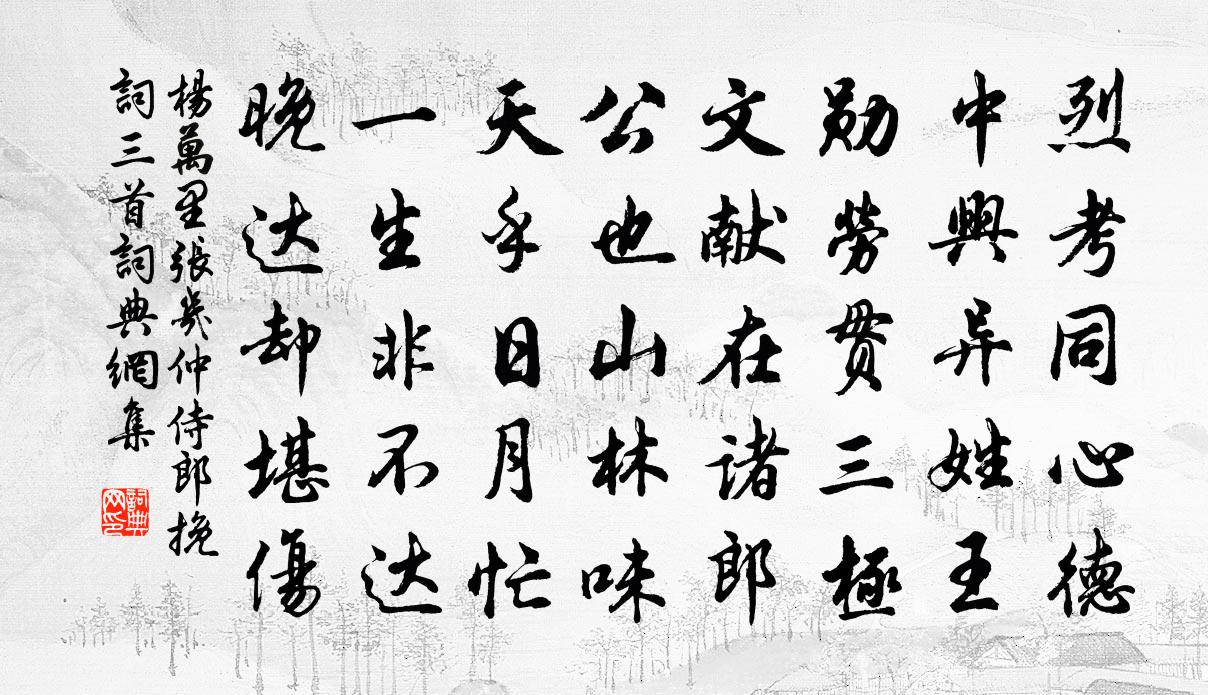 烈考同心德
中興异姓王
勋劳贯三極
文献在诸郎
公也山林味
天乎日月忙
一生非不达
晚达却堪傷
楊萬里張幾仲侍郎挽
詞三首詞典網集
詞典网印